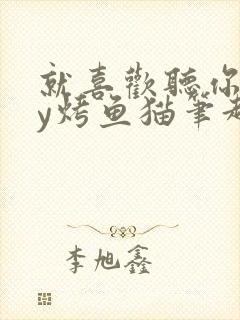 就喜歡聽你
y烤鱼猫筆趣
李旭鑫